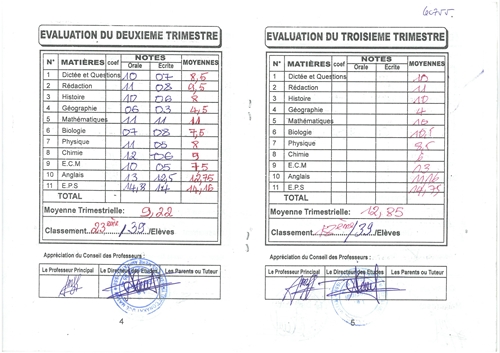 GC755.
EVALUATION DU DEUXIEME TRIMESTRE
N° MATIÈRES coef NOTES MOYENNES
Orale Ecrite
1 Dictée et Questions 10 07 8,5
2 Rédaction 11 08 9,5
3 Histoire 10 06 8
4 Géographie 06 03 4,5
5 Mathématiques 11 11 11
6 Biologie 07 08 7,5
7 Physique 11 05 8
8 Chimie 12 06 9
9 E.C.M 10 05 7,5
10 Anglais 13 12,5 12,75
11 E.P.S 14,8 14 14,16
TOTAL
Moyenne Trimestrielle: 9,22
Classement: 23ème /39 /Elèves
Appréciation du Conseil des Professeurs :
Le Professeur Principal Le Directeur des Etudes Les Parents ou Tuteur
4
EVALUATION DU TROISIEME TRIMESTRE
N° MATIÈRES coef NOTES MOYENNES
Orale Ecrite
1 Dictée et Questions 10
2 Rédaction 11
3 Histoire 10
4 Géographie 4
5 Mathématiques
6 Biologie 10,5
7 Physique 8,5
8 Chimie
9 E.C.M 13
10 Anglais
11 E.P.S 14,75
TOTAL
Moyenne Trimestrielle: 12,85
Classement: 12ème /39 /Elèves
Appréciation du Conseil des Professeurs :
Le Professeur Principal Le Directeur des Etudes Les Parents ou Tuteur
5